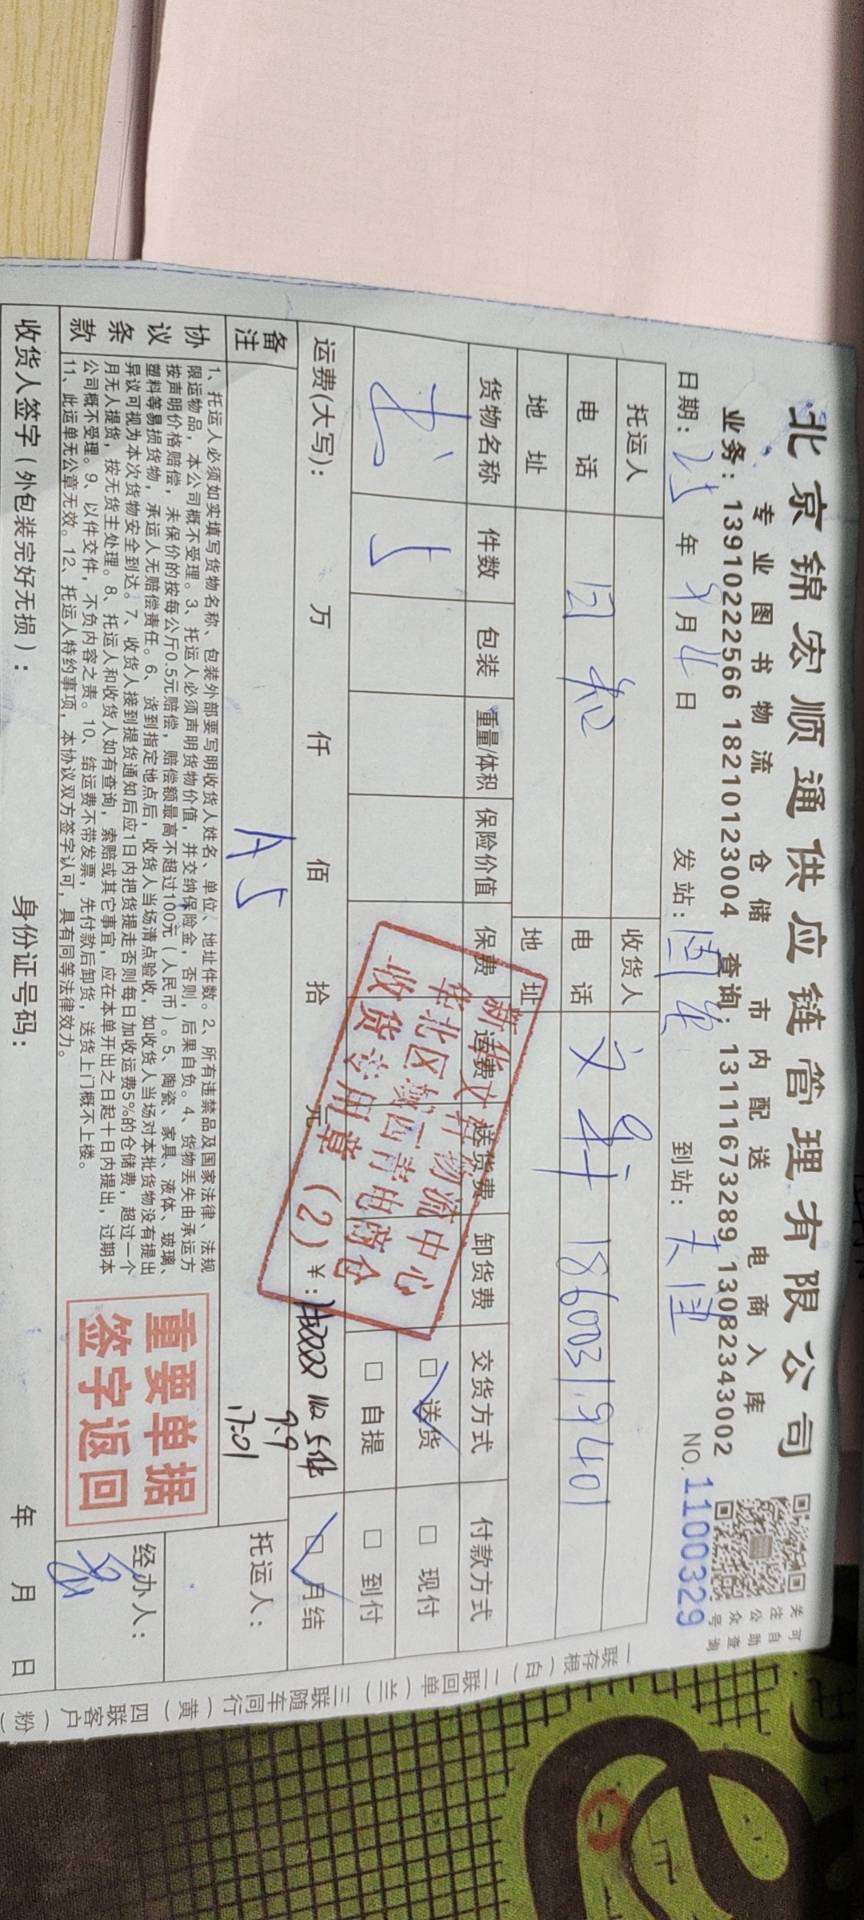 北京锦宏顺通供应链管理有限公司
专业图书物流 仓储 市内配送 电商入库
业务：13910222566 18210123004 查询：13111673289 13082343002
关注公众号
可自助查询
日期： 年 月 日 发站： 到站： NO.1100329
托运人 收货人
电话 电话 文轩 18600319401
地址 地址
货物名称 件数 包装 重量/体积 保险价值 保费 运费 送货费 卸货费 交货方式 付款方式
书 □送货 □现付
□自提 □到付
运费(大写)： 万 仟 佰 拾 元 ¥： □月结
新华文轩物流中心
收货专用章(2)
备注 A5
9.9
17:01
托运人：
协议条款
1、托运人必须如实填写货物名称、包装外部要写明收货人姓名、单位、地址件数。2、所有违禁品及国家法律、法规
限运物品，本公司概不受理。3、托运人必须声明货物价值，并交纳保险金，否则，后果自负。4、货物丢失由承运方
按声明价格赔偿，未保价的按每公斤0.5元赔偿，赔偿额最高不超过100元（人民币）。5、陶瓷、家具、液体、玻璃、
塑料等易损货物，承运人无赔偿责任。6、货到指定地点后，收货人当场清点验收，如收货人当场对本批货物没有提出
异议可视为本次货物安全到达。7、收货人接到提货通知后应1日内把货提走否则每日加收运费5%的仓储费，超过一个
月无人提货，按无货主处理。8、托运人和收货人如有查询，索赔或其它事宜，应在本单开出之日起十日内提出，过期本
公司概不受理。9、以件交件，不负内容之责。10、结运费不带发票，先付款后卸货，送货上门概不上楼。
11、此运单无公章无效。12、托运人特约事项，本协议双方签字认可，具有同等法律效力。
重要单据
签字返回
经办人：
收货人签字（外包装完好无损）： 身份证号码： 年 月 日
一联存根（白） 二联回单（兰） 三联随车同行（黄） 四联客户（粉）